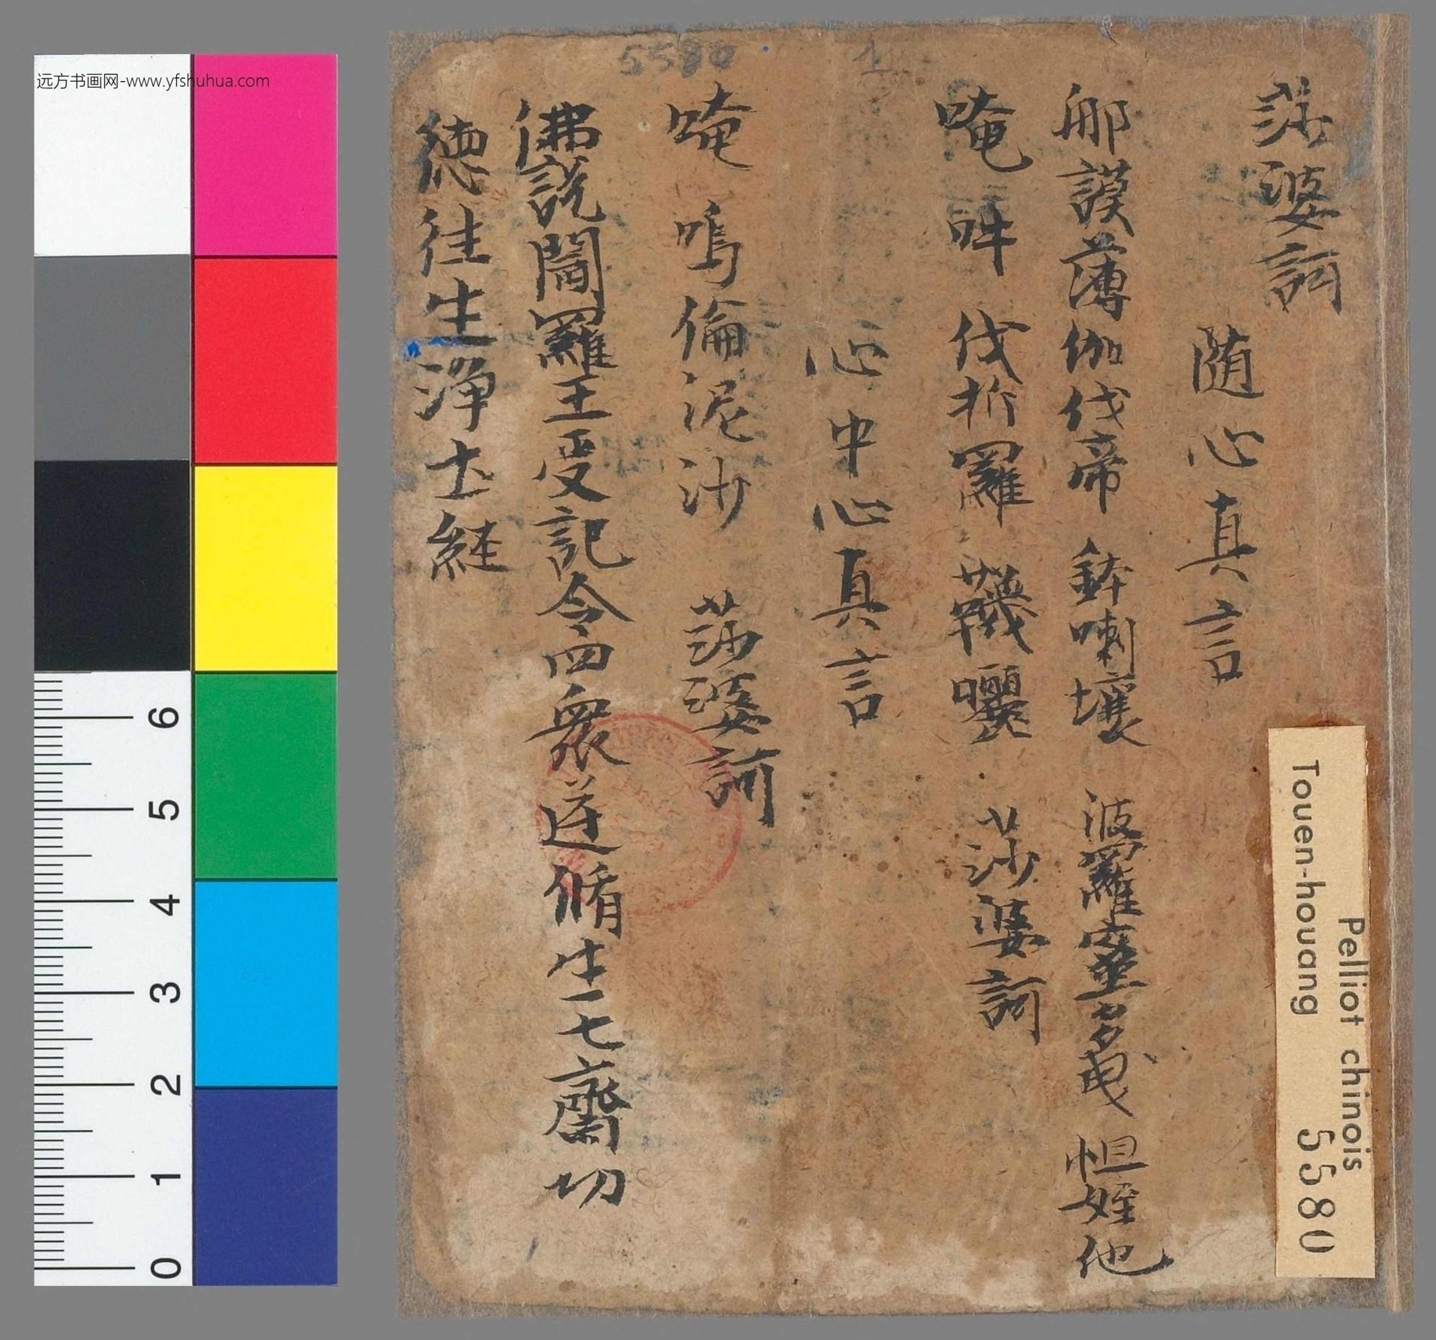 莎婆訶
随心真言
那謨薄伽伐帝 鉢喇壤 波羅蜜多曳 怛姪他
唵 吽 伐折羅 韈囉 莎婆訶
心中心真言
唵 嗚倫泥沙 莎婆訶
佛說閻羅王受記令四衆逆脩生七齋功
德往生淨土經
5580
1
Pelliot chinois
Touen-houang 5580
远方书画网-www.yfshuhua.com
6
5
4
3
2
1
0